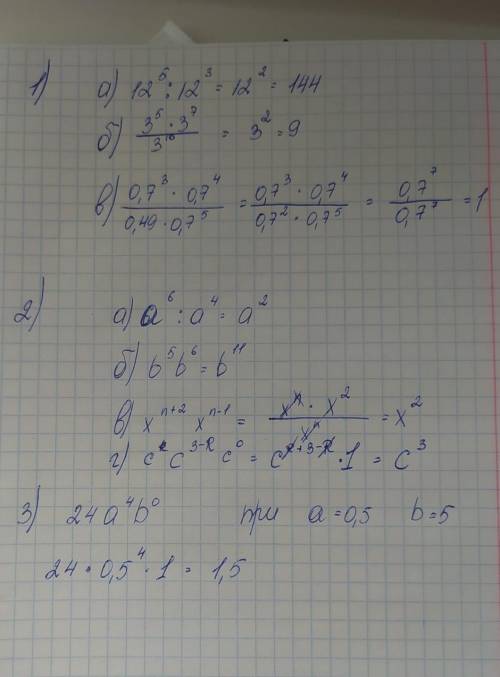 1) а) 12⁵ : 12³ = 12² = 144
б) (3⁵ · 3⁷)/3¹⁰ = 3² = 9
в) (0,7³ · 0,7⁴)/(0,49 · 0,7⁵) = (0,7³ · 0,7⁴)/(0,7² · 0,7⁵) = 0,7⁷/0,7⁷ = 1
2) а) a⁶ : a⁴ = a²
б) b⁵b⁶ = b¹¹
в) xⁿ⁺² xⁿ⁻¹ = (xⁿ · x²)/xⁿ = x²
г) cᴿ c³⁻ᴿ c⁰ = cᴿ⁺³⁻ᴿ · 1 = c³
3) 24a⁴b⁰ при a = 0,5 b = 5
24 · 0,5⁴ · 1 = 1,5